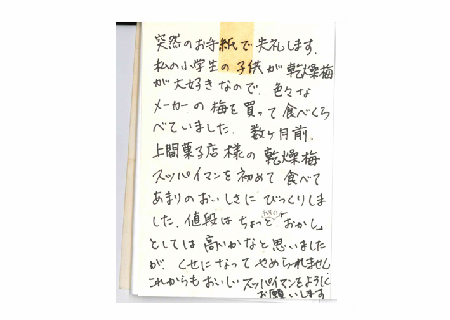 突然のお手紙で失礼します。
私の小学生の子供が乾燥梅
が大好きなので、色々な
メーカーの梅を買って食べくら
べていました。数ヶ月前、
上間菓子店様の乾燥梅
スッパイマンを初めて食べて
あまりのおいしさにびっくりしま
した。値段はちょっとおかし
としては高いかなと思いました
が、くせになってやめられません
これからもおいしいスッパイマンをよろしく
お願いします